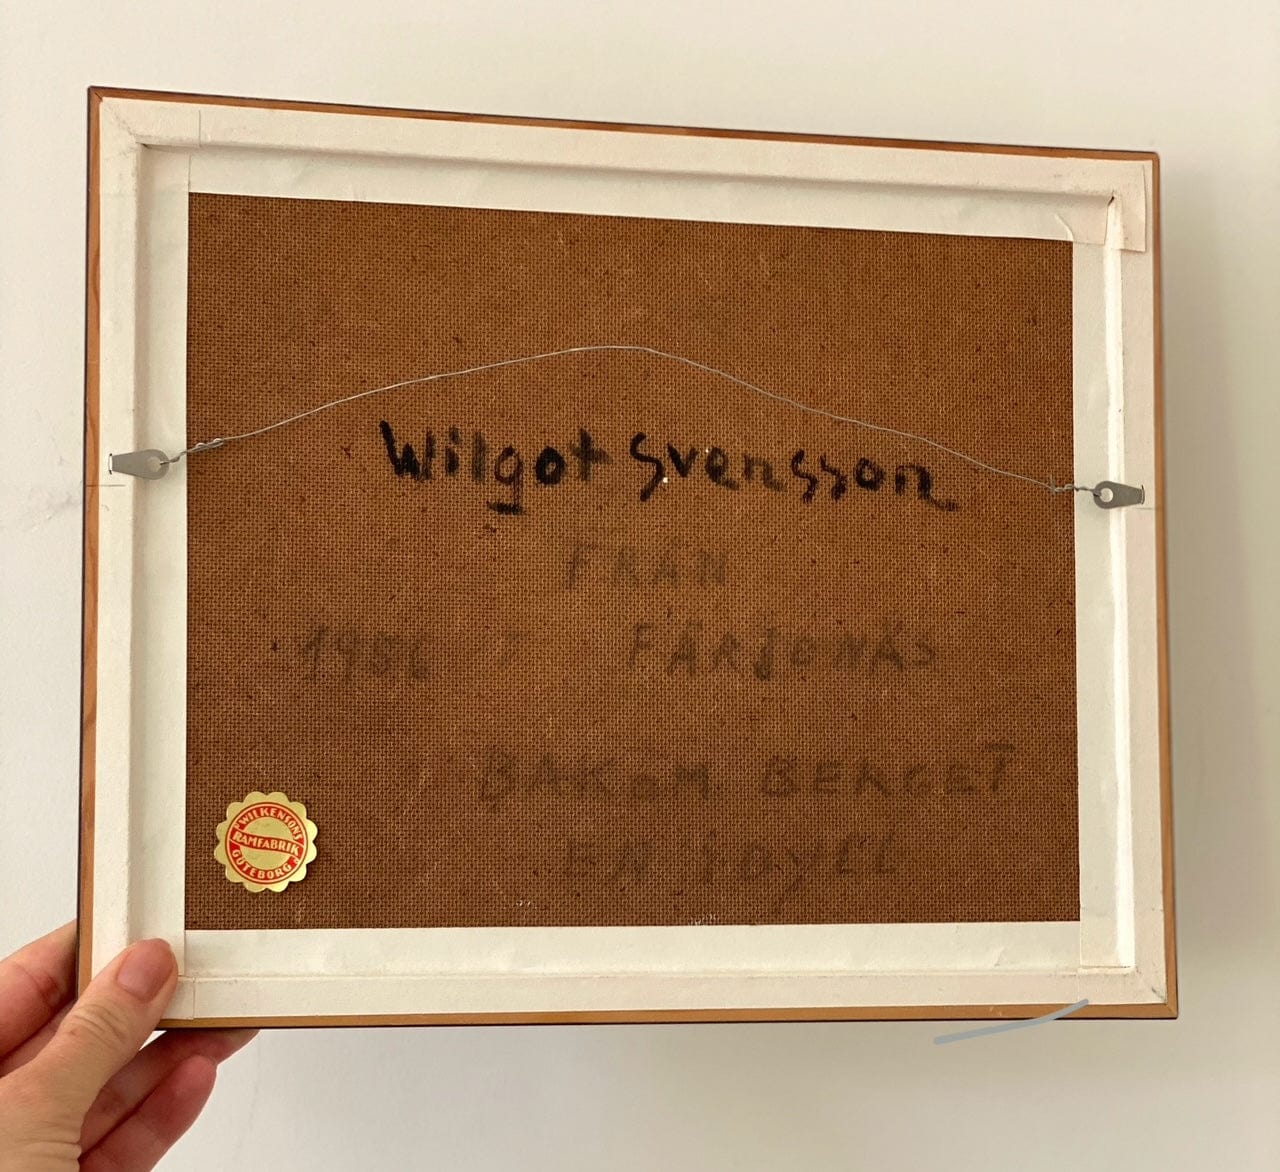 Wilgot Svensson
FRÅN
1956 FÄRJENÄS
BAKOM BERGET
WILKENSONS
RAMFABRIK
GÖTEBORG